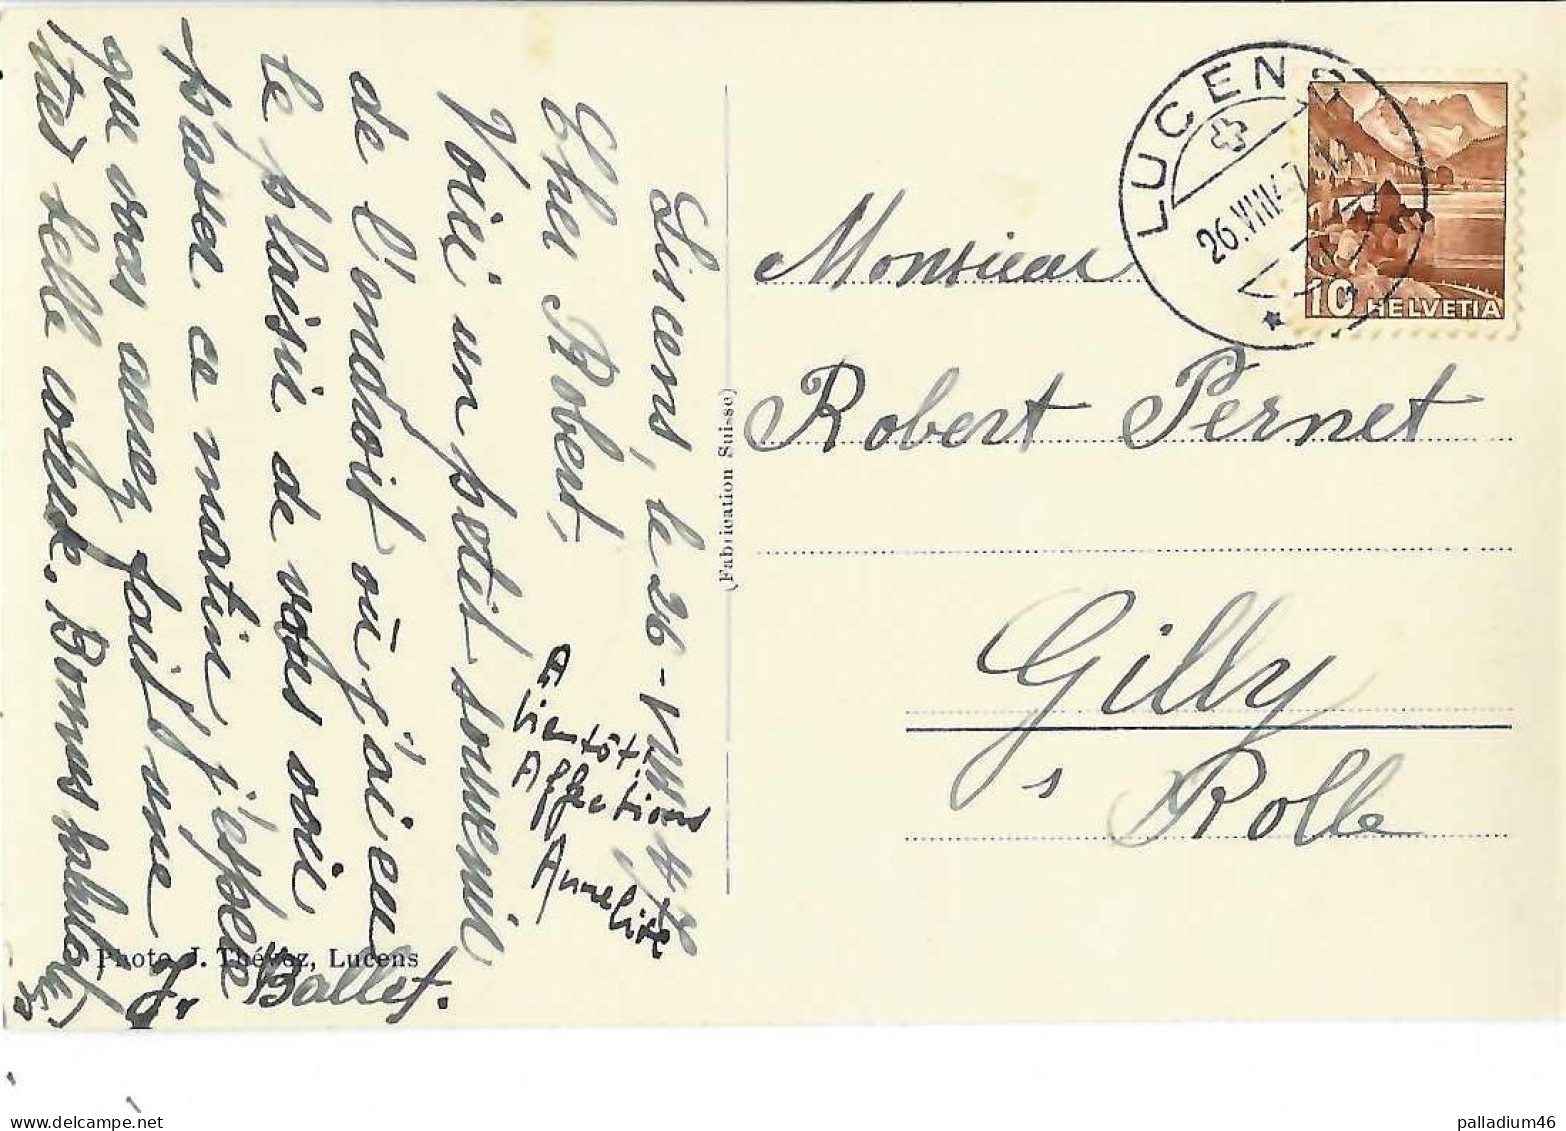 Lucens, le 26-VIII 47
Cher Robert,
Voici un petit souvenir
de l'endroit où j'ai eu
le plaisir de vous voir
passer ce matin, j'espère
que vous avez fait une
très belle course. Bonnes salutations
J. Ballet.
A
bientôt!
Affections
Anneliese
Photo J. Thévoz, Lucens
(Fabrication Suisse)
LUCENS
26.VIII.47
10 HELVETIA
Monsieur
Robert Pernet
Gilly
s Rolle
palladium46